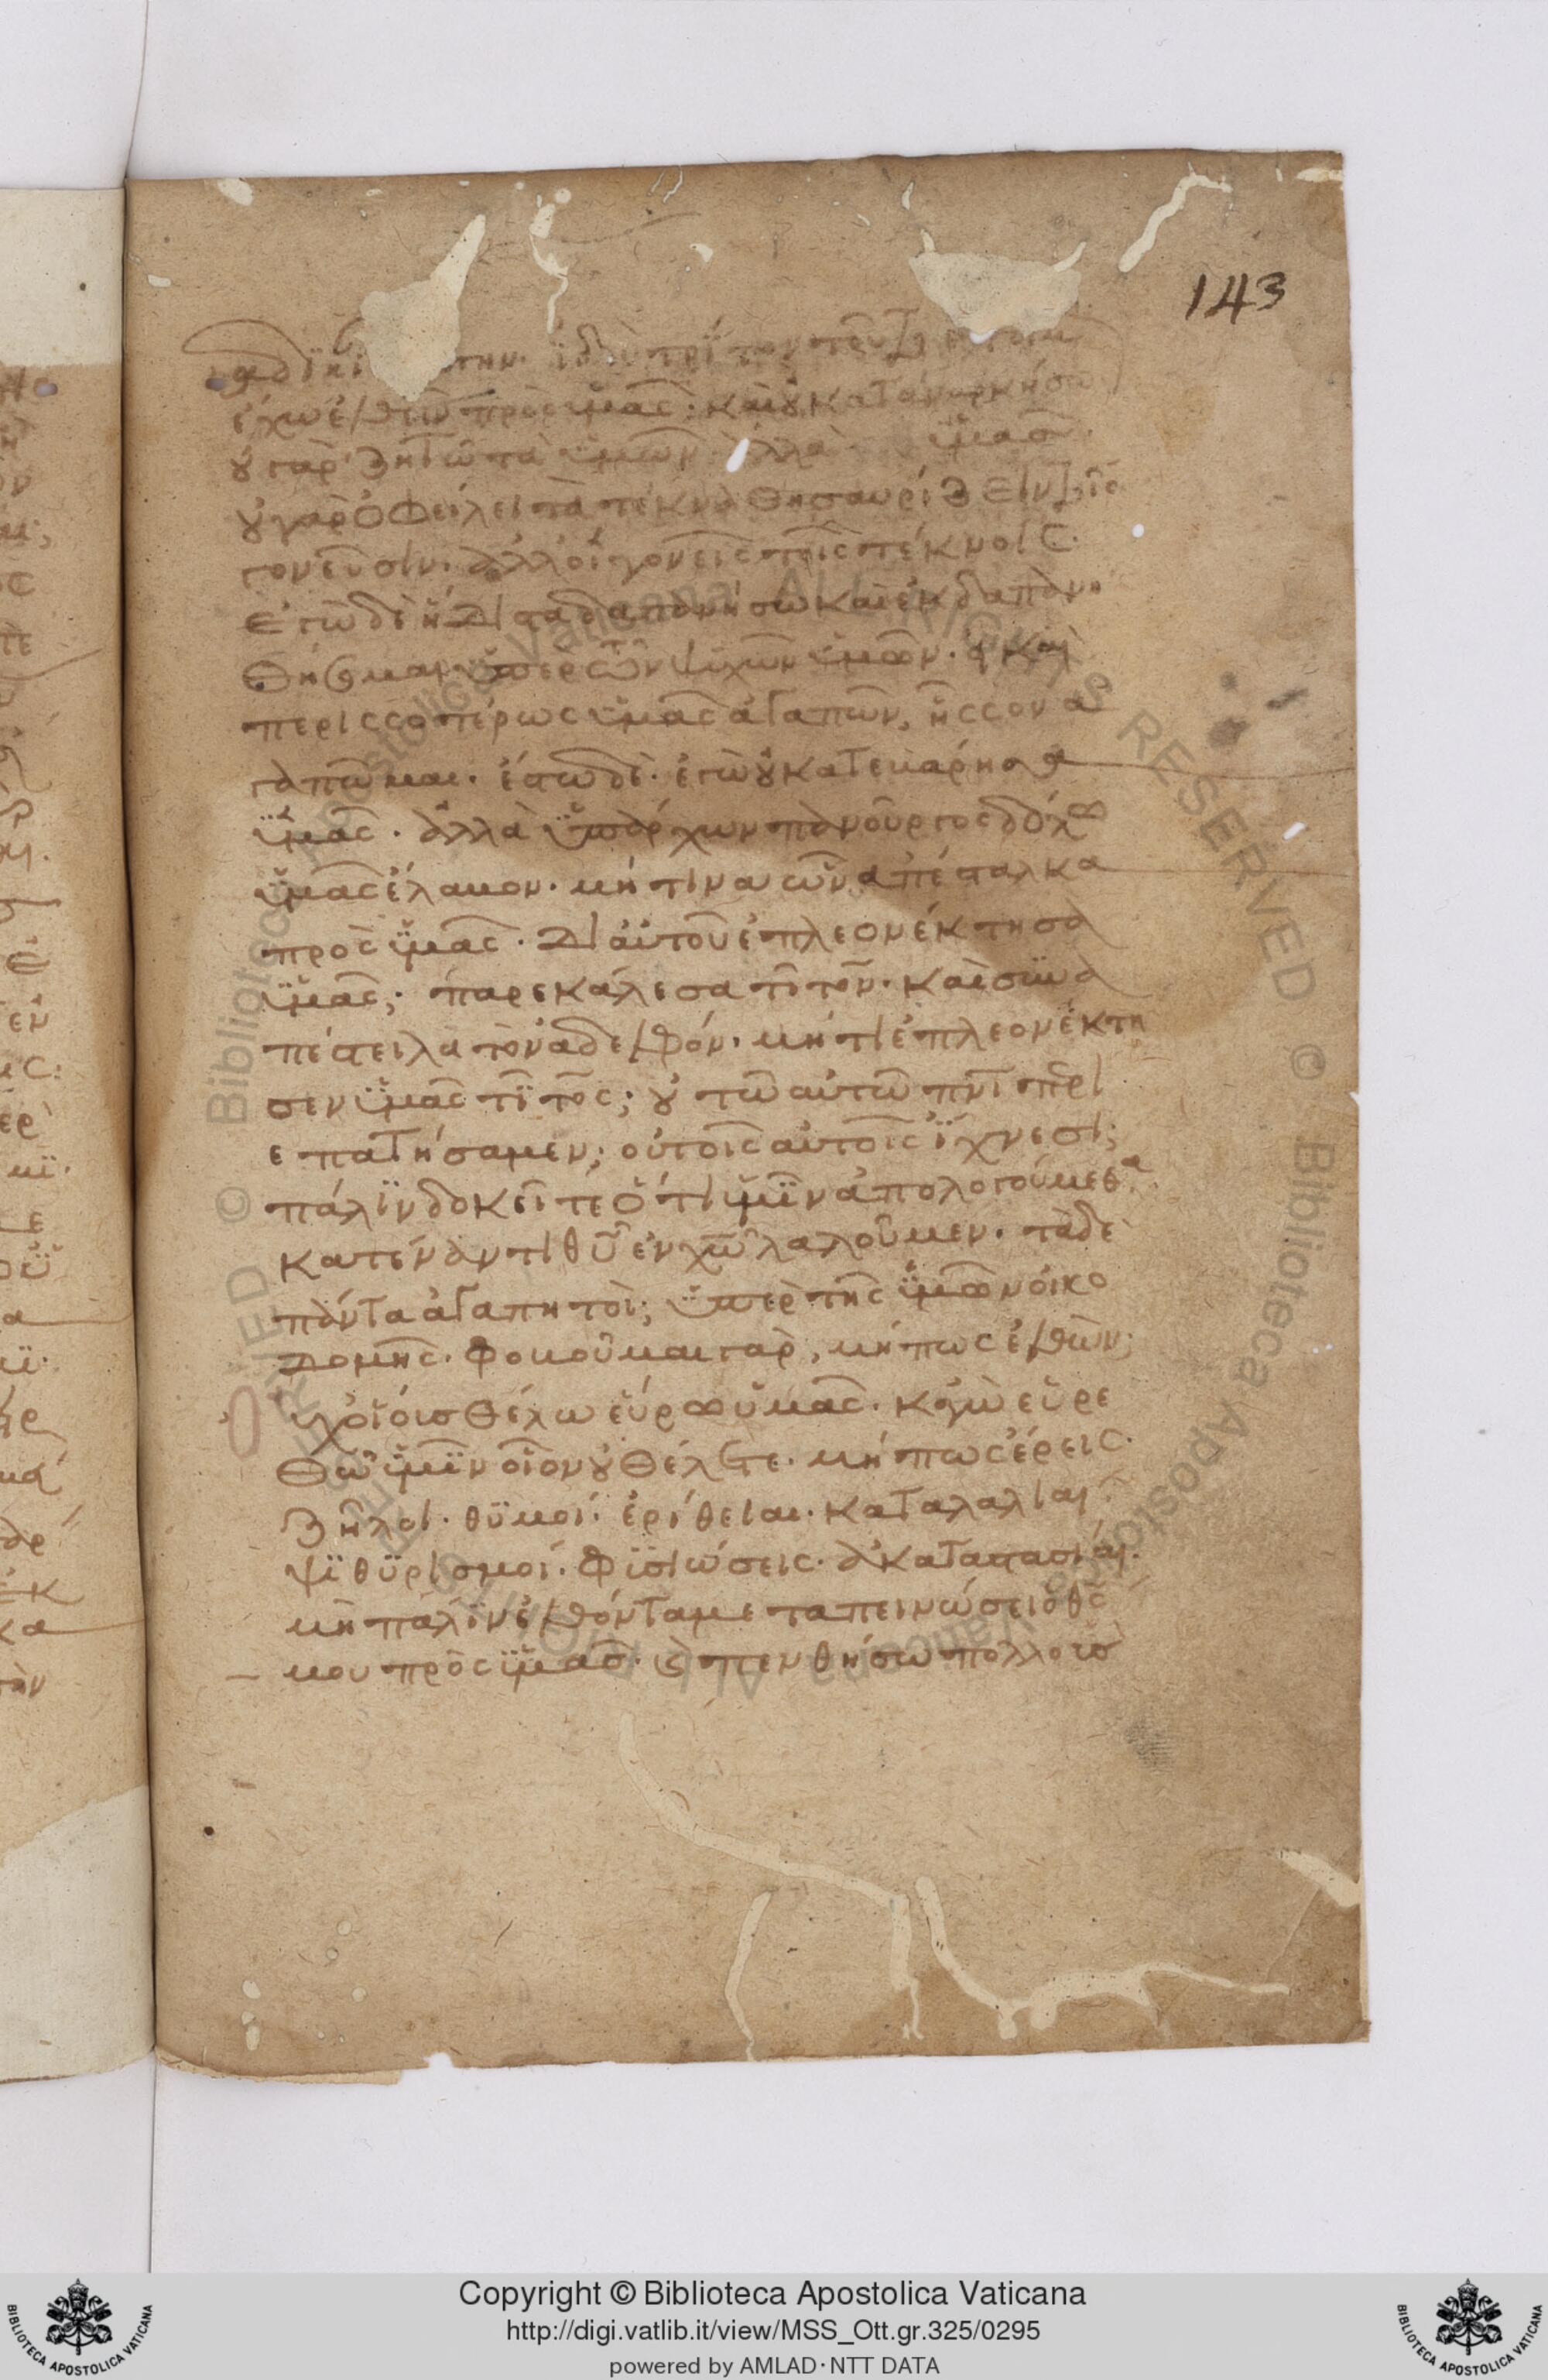 143
ἀδικί την· ἰδοὺ τρίτον τοῦτο ἑτοίμ
ἔχω ἐλθεῖν πρὸς ὑμᾶς· καὶ οὐ καταναρκήσω
οὐ γὰρ ζητῶ τὰ ὑμῶν ἀλλὰ ὑμᾶσ·
οὐ γὰρ ὀφείλει τὰ τέκνα θησαυρίζειν τοῖς
γονεῦσιν· ἀλλ οἱ γονεῖς τοῖς τέκνοις·
ἐγὼ δὲ ἥδιστα δαπανήσω καὶ ἐκδαπανη
θήσομαι ὑπερ τῶν ψυχῶν ὑμῶν· εἰ καὶ
περισσοτέρως ὑμᾶς ἀγαπῶν, ἧσσον ἀ
γαπῶμαι· ἔστω δὲ· ἐγὼ οὐ κατεβάρησα
ὑμᾶς· ἀλλὰ ὑπάρχων πανοῦργος δόλω
ὑμᾶς ἔλαβον· μή τινα ὧν ἀπέσταλκα
πρὸς ὑμᾶς· δι αὐτοῦ ἐπλεονέκτησα
ὑμᾶς; παρεκάλεσα τίτον· καὶ συνα
πέστειλα τὸν ἀδελφόν· μή τι ἐπλεονέκτη
σεν ὑμᾶς τίτος; οὐ τῶ αὐτῶ πνι περι
επατήσαμεν; οὐ τοῖς αὐτοῖς ἴχνεσι;
πάλιν δοκεῖτε ὅτι ὑμῖν ἀπολογούμεθα
κατέναντι θυ ἐν χω λαλοῦμεν· τὰ δὲ
πάντα ἀγαπητοὶ; ὑπερ τῆς ὑμῶν οἰκο
δομῆς· φοβοῦμαι γὰρ, μήπως ἐλθὼν;
οὐχ οἵους θέλω εὕρω ὑμᾶς· κἀγὼ εὑρε
θῶ ὑμῖν οἷον οὐ θέλετε· μήπως ἔρεις·
ζῆλοι· θυμοί· ἐρίθειαι· καταλαλιαὶ·
ψιθυρισμοί· φυσιώσεις· ἀκαταστασίαι·
μὴ πάλιν ἐλθόντα με ταπεινώσει ὁ θς
μου πρὸς ὑμᾶσ· καὶ πενθήσω πολλοὺσ
Copyright © Biblioteca Apostolica Vaticana
http://digi.vatlib.it/view/MSS_Ott.gr.325/0295
powered by AMLAD·NTT DATA